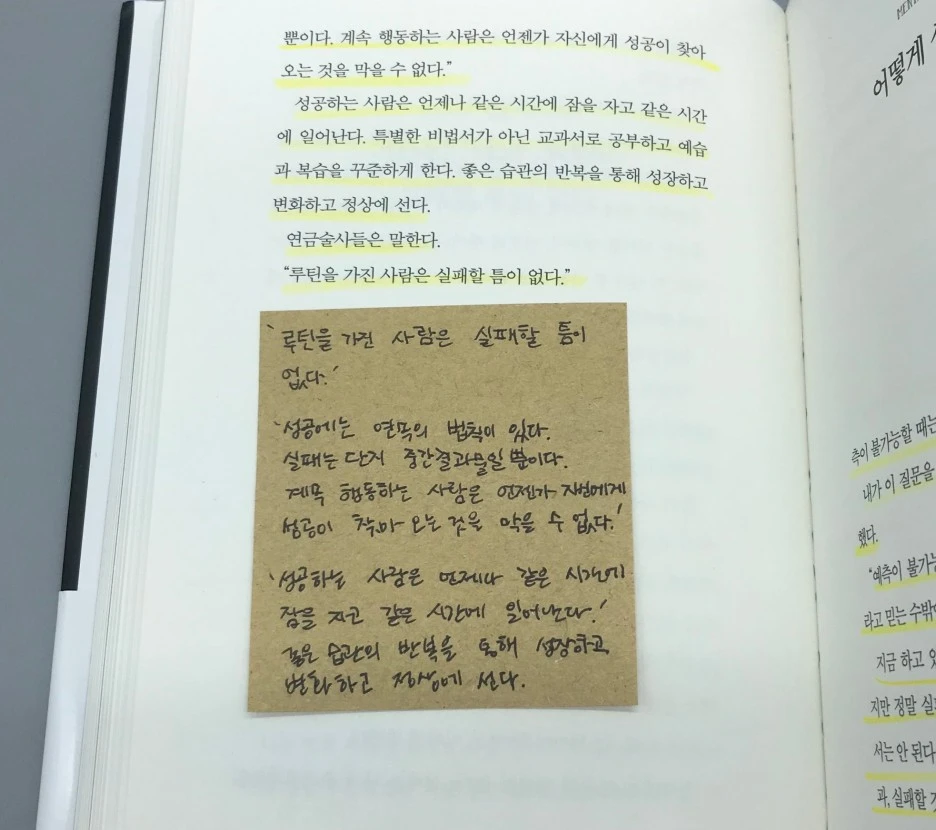 뿐이다. 계속 행동하는 사람은 언젠가 자신에게 성공이 찾아
오는 것을 막을 수 없다.”
성공하는 사람은 언제나 같은 시간에 잠을 자고 같은 시간
에 일어난다. 특별한 비법서가 아닌 교과서로 공부하고 예습
과 복습을 꾸준하게 한다. 좋은 습관의 반복을 통해 성장하고
변화하고 정상에 선다.
연금술사들은 말한다.
“루틴을 가진 사람은 실패할 틈이 없다.”
‘루틴을 가진 사람은 실패할 틈이
없다.’
‘성공에는 연목의 법칙이 있다.
실패는 단지 중간결과물일 뿐이다.
계속 행동하는 사람은 언젠가 자신에게
성공이 찾아 오는 것을 막을 수 없다.’
‘성공하는 사람은 언제나 같은 시간에
잠을 자고 같은 시간에 일어난다.’
좋은 습관의 반복을 통해 성장하고
변화하고 정상에 선다.
어떻게
측이 불가능할 때는
내가 이 질문을
했다.
“예측이 불가능
라고 믿는 수밖에
지금 하고 있
지만 정말 실
서는 안 된다
과, 실패할